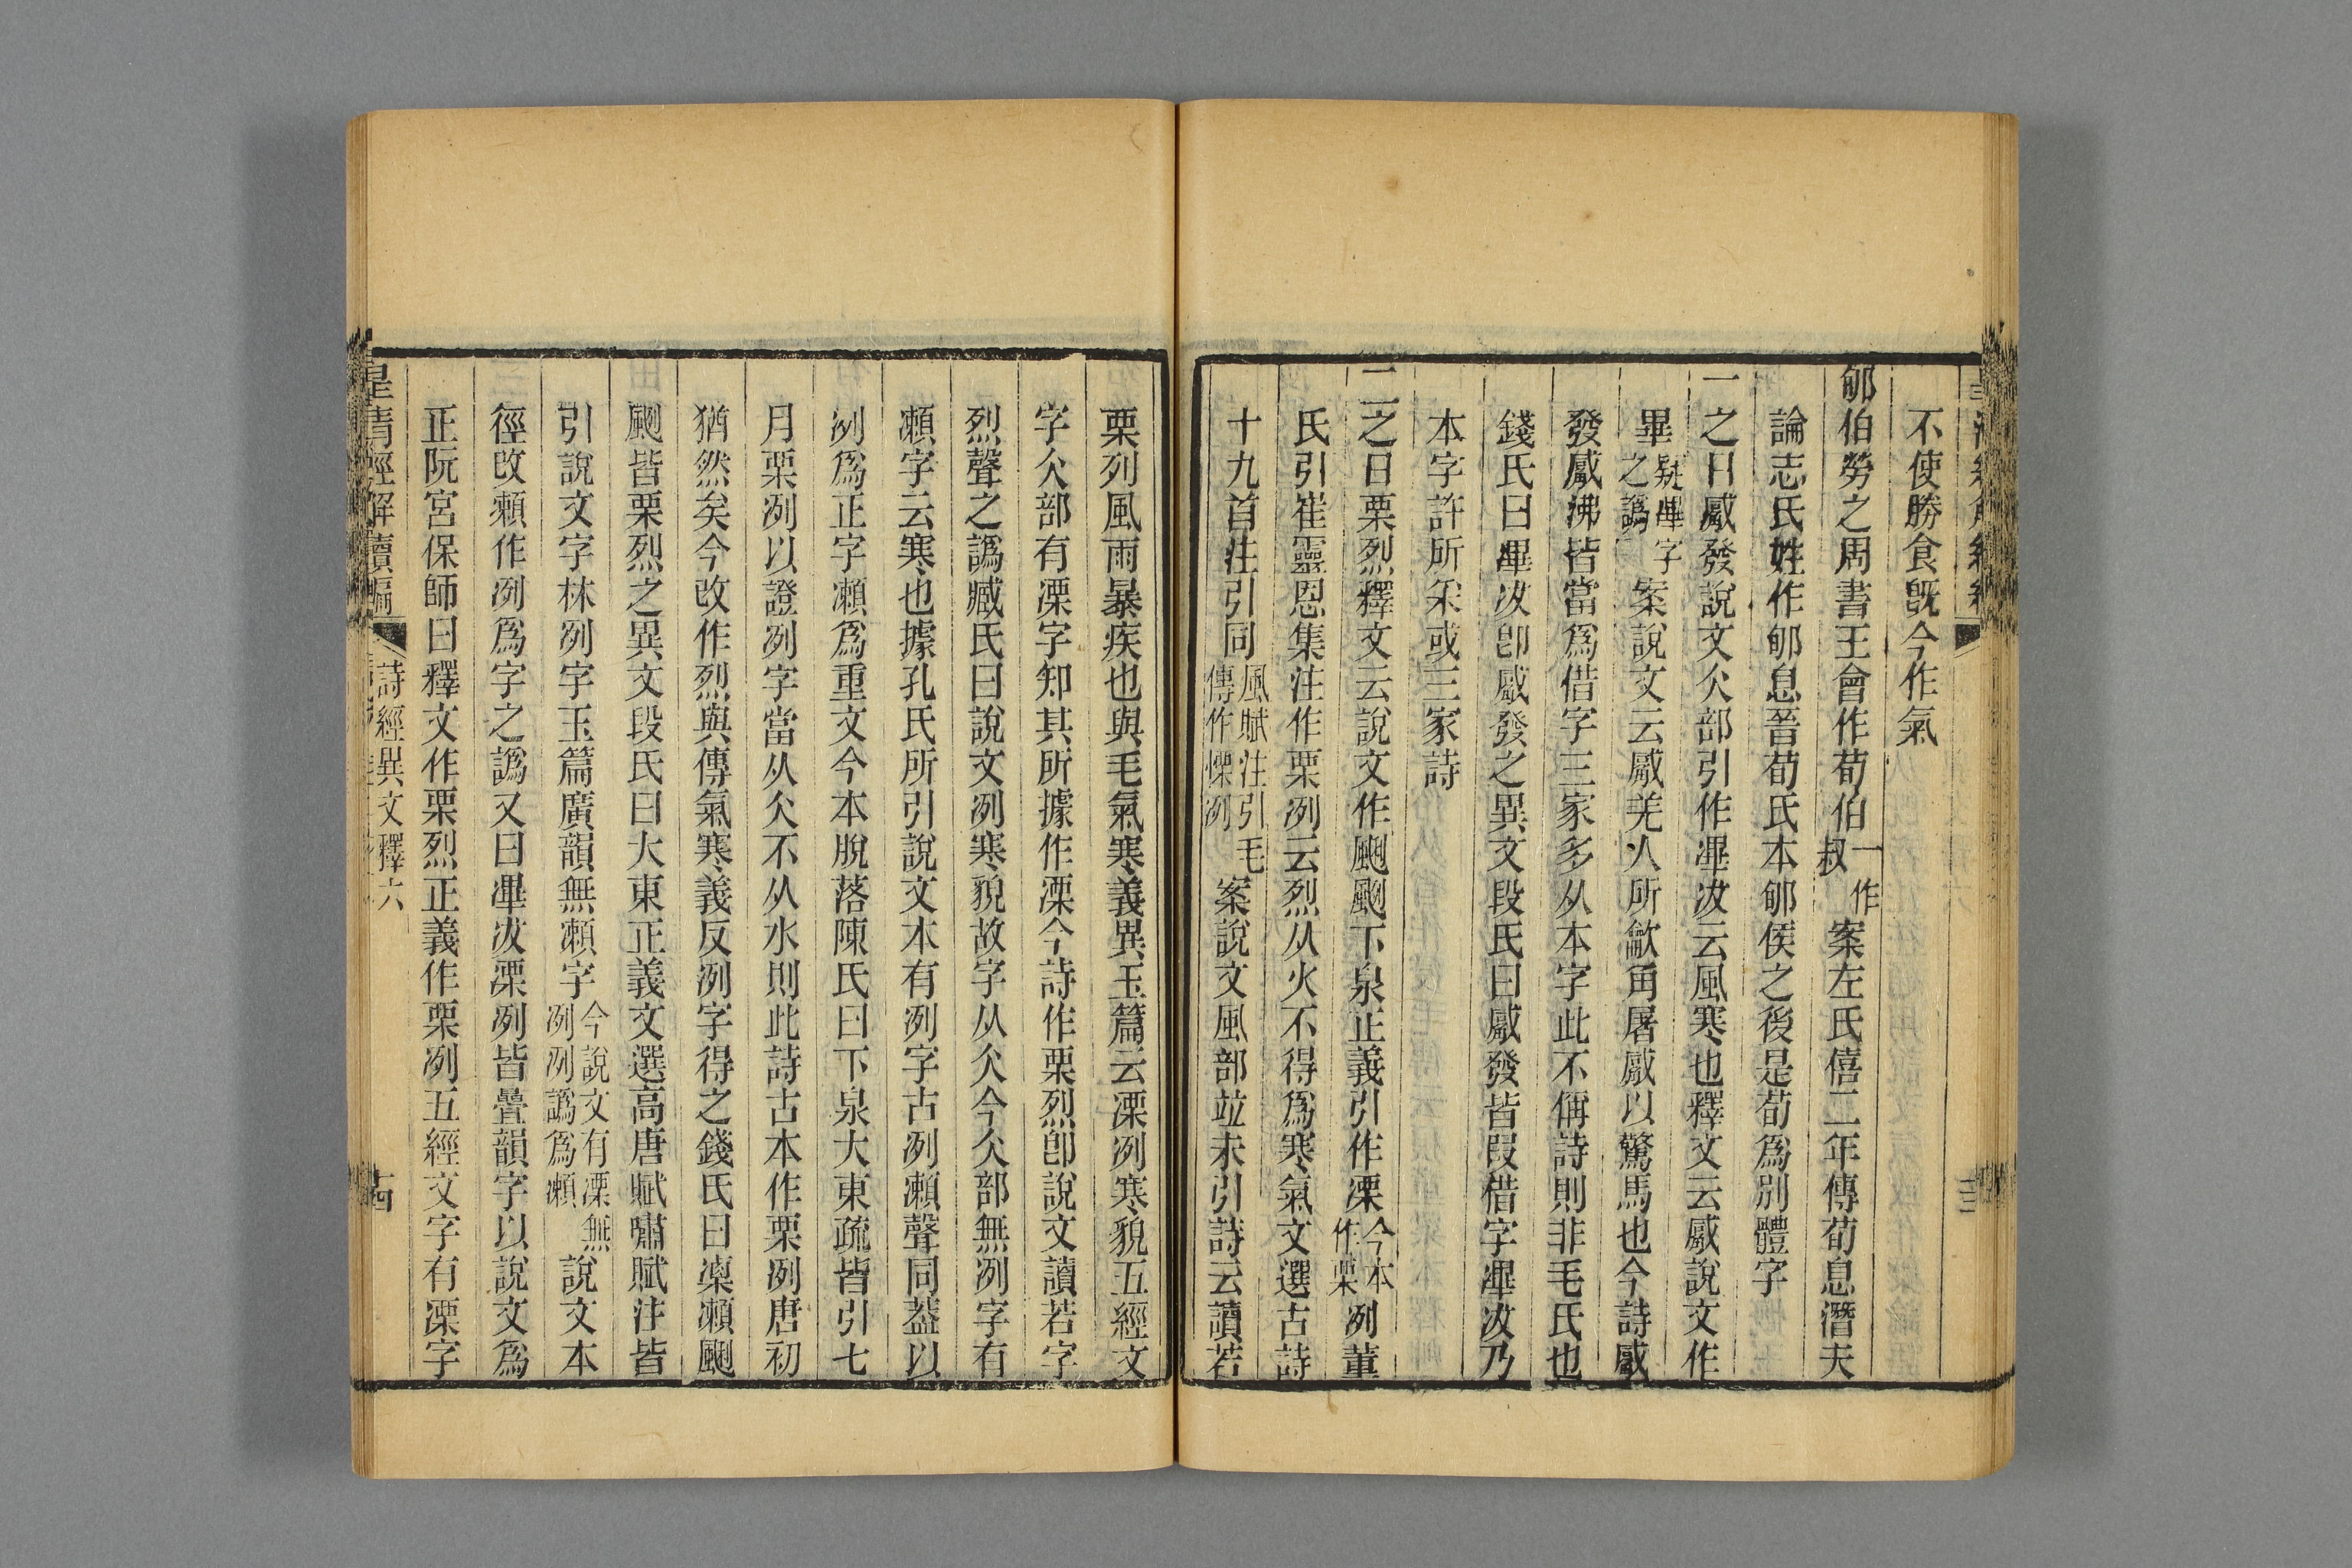 不使勝食旣今作氣
郇伯勞之周書王會作荀伯一作叔案左氏僖二年傳荀息潛夫
論志氏姓作郇息晉荀氏本郇侯之後是荀爲別體字
一之日觱發說文仌部引作滭冹云風寒也釋文云觱說文作
畢疑滭字之譌案說文云觱羌人所龡角屠觱以驚馬也今詩觱
發觱沸皆當爲借字三家多从本字此不偁詩則非毛氏也
錢氏曰滭冹卽觱發之異文段氏曰觱發皆叚借字滭冹乃
本字許所采或三家詩
二之日栗烈釋文云說文作颲颲下泉正義引作凓今本作栗冽董
氏引崔靈恩集注作栗冽云烈从火不得爲寒氣文選古詩
十九首注引同風賦注引毛傳作慄冽案說文風部竝未引詩云讀若
栗列風雨暴疾也與毛氣寒義異玉篇云凓冽寒貌五經文
字仌部有凓字知其所據作凓今詩作栗烈卽說文讀若字
烈聲之譌臧氏曰說文冽寒貌故字从仌今仌部無冽字有
瀨字云寒也據孔氏所引說文本有冽字古冽瀨聲同葢以
冽爲正字瀨爲重文今本脫落陳氏曰下泉大東疏皆引七
月栗冽以證冽字當从仌不从水則此詩古本作栗冽唐初
猶然矣今改作烈與傳氣寒義反冽字得之錢氏曰凓瀨颲
颲皆栗烈之異文段氏曰大東正義文選高唐賦嘯賦注皆
引說文字林冽字玉篇廣韻無瀨字今說文有凓無冽冽譌爲瀨說文本
徑改瀨作冽爲字之譌又曰滭冹凓冽皆疊韻字以說文爲
正阮宮保師曰釋文作栗烈正義作栗冽五經文字有凓字
皇清經解續編 詩經異文釋六 十四